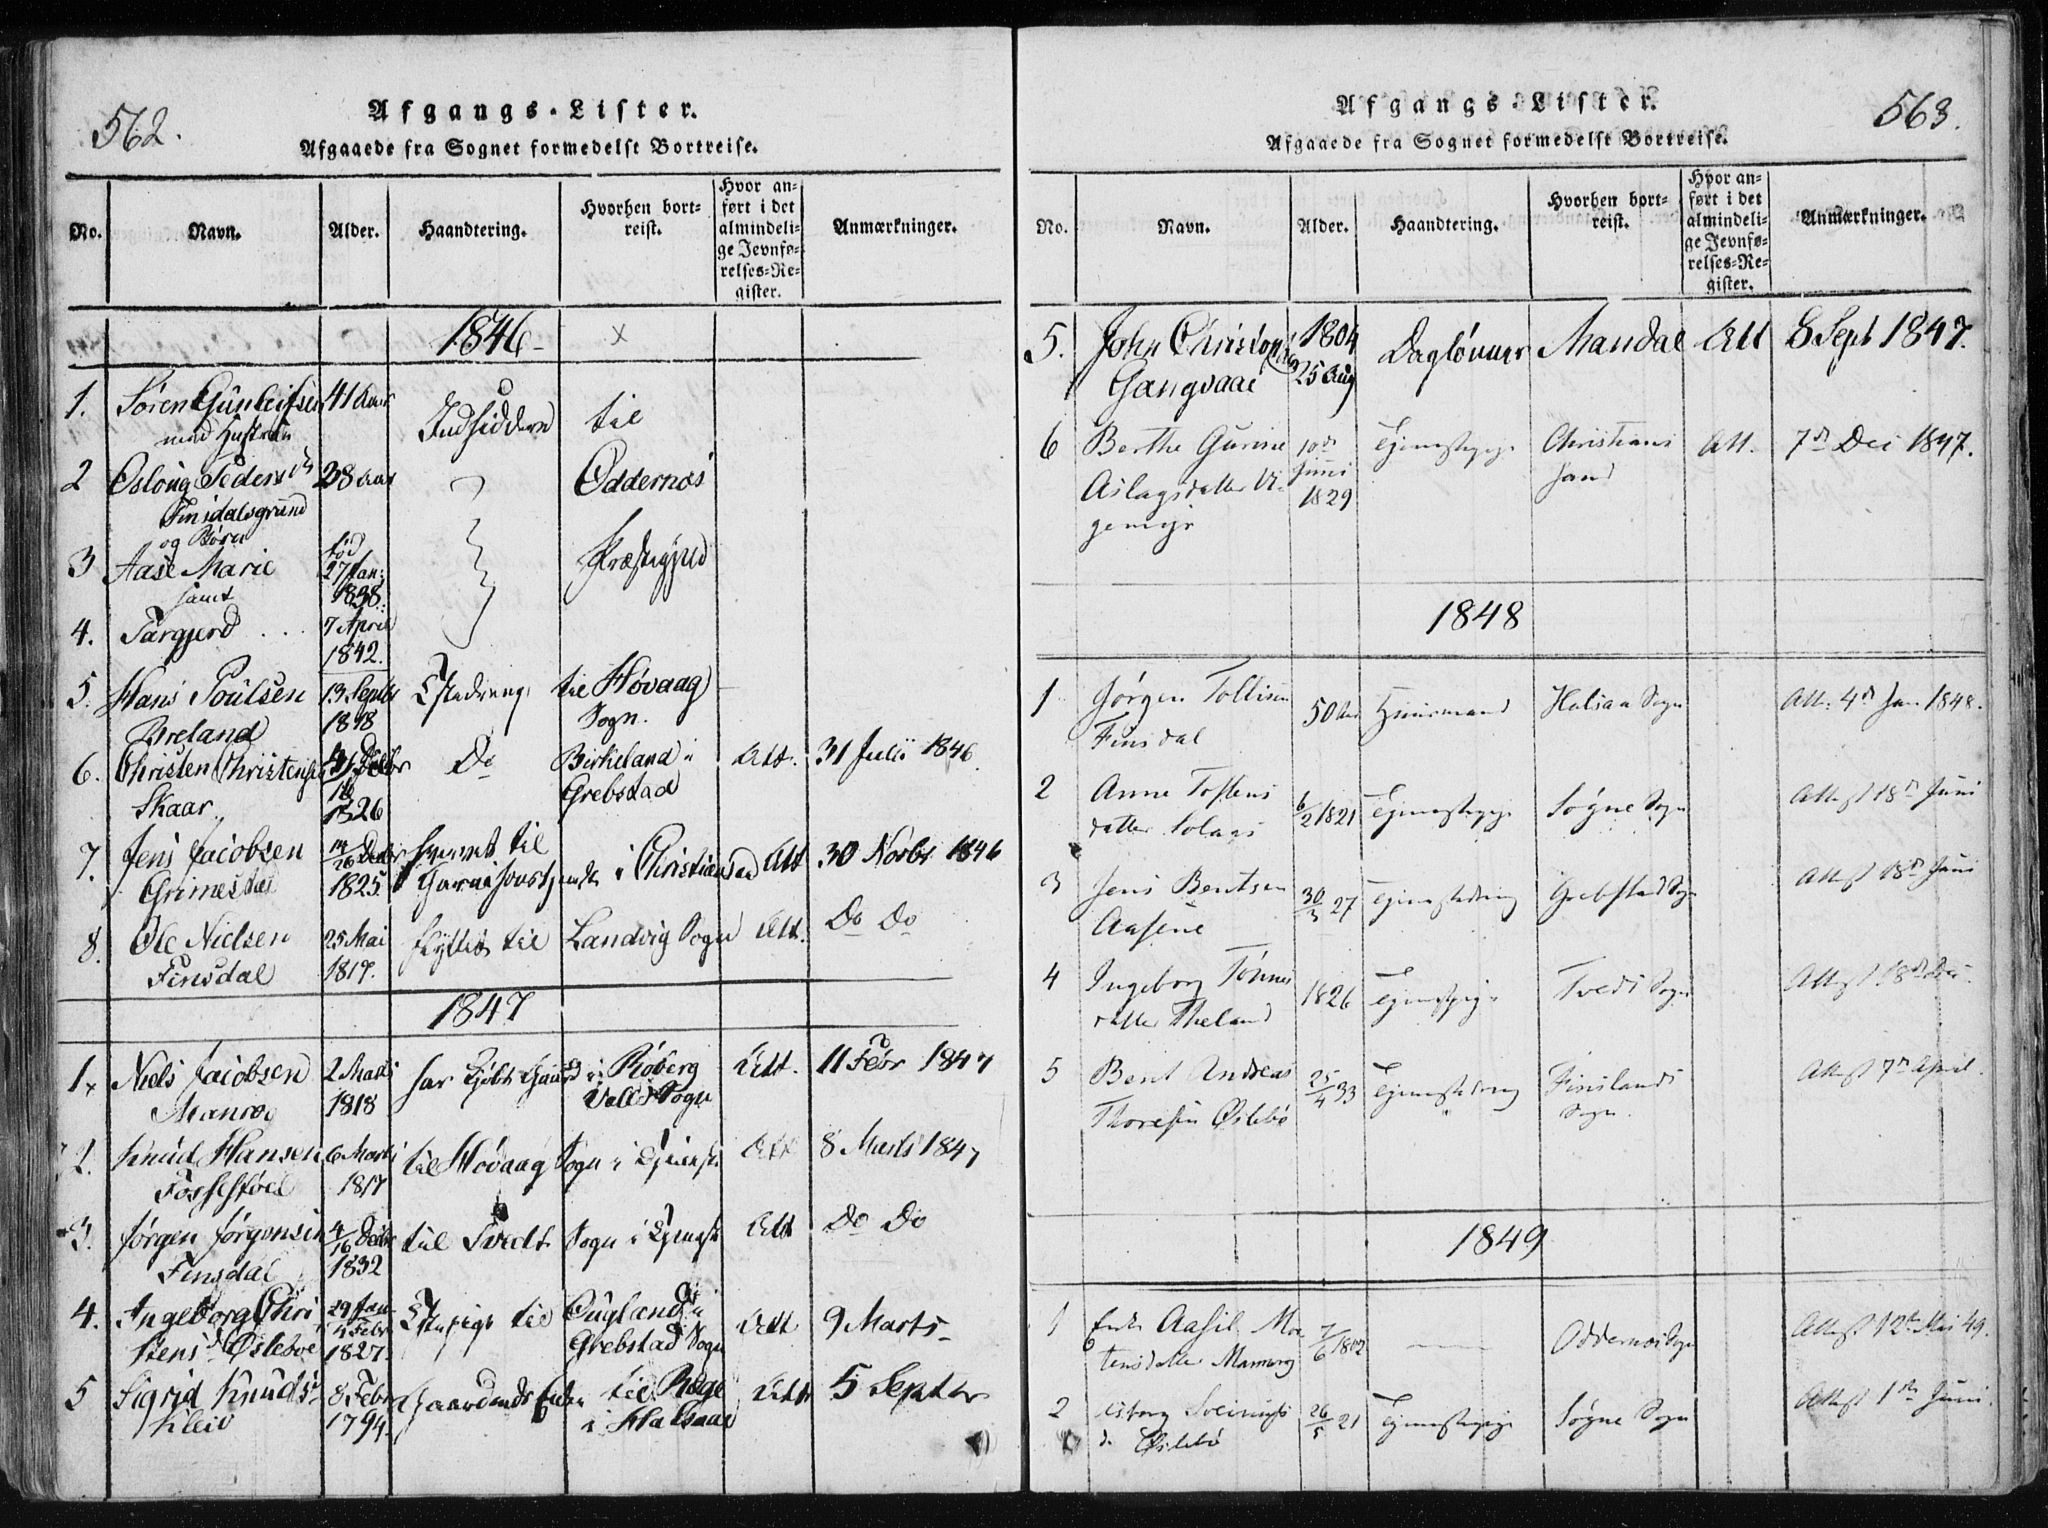 562.
Afgangs-Lister.
Afgaaede fra Sognet formedelst Bortreise.
No. Navn. Alder. Haandtering. Hvorhen bortreist. Hvor anført i det almindelige Jevnførelses-Register. Anmærkninger.
1846
1. Søren Gunleifsen 41 Aar Indsidder til
med Hustru
2 Osloug Peders 38 Aar Oddernes
Finsdalsgrund
og Børn
3 Aase Marie fød 27 Jan: 1838. Præstegjeld
samt
4. Targjerd 7 April 1842.
5. Hans Poulsen 13 Septbr til Høvaag
Breland 1818 Sogn.
6. Christen Christensen Do Birkeland i Att. 31 Julii 1846
Skaar 1826 Grebstad
7. Jens Jacobsen 14/26 Decbr til
Grimestad 1825 i Christiansand Att 30 Novbr 1846
8. Ole Nielsen 25 Mai flyttet til Landvig Sogn Att. Do Do
Finsdal 1819.
1847
1 Niels Jacobsen 2 Marts har kjøbt Gaard i Røberg Att. 11 Febr 1847
1818 Valle Sogn
2. Knud Hansen 6 Marts til Høvaag Sogn i Att 8 Marts 1847
Fossestøel 1817
3. Jørgen Jørgensen 4/16 Decbr til Tvedt Sogn i Att Do Do
Finsdal 1832
4. Ingeborg Chri- 29 Jan til Ougland i Att 9 Marts
stens d Øslebøe 4 Febr 1827. Grebstad Sogn
5 Sigrid Knuds 8 Febr Gaardmands Enke til Røge Att 5 Septbr
Kleiv 1794. i Halsaae
563.
Afgangs-Lister.
Afgaaede fra Sognet formedelst Bortreise.
No. Navn. Alder. Haandtering. Hvorhen bortreist. Hvor anført i det almindelige Jevnførelses-Register. Anmærkninger.
5. John Christens 1804 Daglønner Mandal Att 8 Sept 1847.
Gangvaae 25 Aug
6 Berthe Gurine 10de Tjenestepige Christian- Att. 7de Dec 1847.
Aslagsdatter Vi- Juni sand
gemyr 1829
1848
1 Jørgen Tollisen 50 Aar Huusmand Halsaa Sogn Att. 4de Jan 1848.
Finsdal
2 Anne Tostens 6/2 1821 Tjenestepige Søgne Sogn Attest 18de Juni
datter
3 Jens Bentsen 30/3 27 Tjenestedreng Grebstad Sogn Attest 18de Juni
Aasene
4 Ingeborg Tønnes 1826 Tjenestepige Tveds Sogn Attest 18de Dec.
datter Theland
5 Bent Andreas 25/4 33 Tjenestedreng Finslands Attest 7de April.
Thoresen Øslebø Sogn.
1849
1 Enke Aasil Mor- 7/6 1802 Oddernes Sogn Attest 12te Mai 49.
tensdatter
2 26/5 21 Tjenestepige Søgne Sogn Attest 1ste Juni.
d. Øslebø